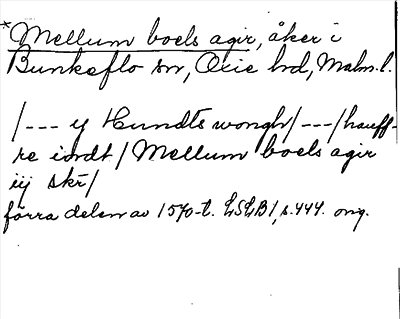 *Mellum boels agir, åker i
Bunkeflo sn, Oxie hd, Malm. l.
/--- y Hundts wongh/---/hauff-
re iordt/Mellum boels agir
iij skr/
förra delen av 1570-t. LSLB1, s. 444. orig.